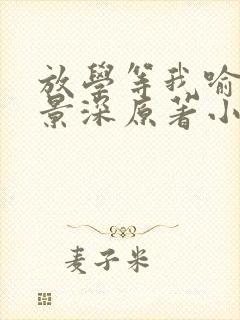 放學等我喻
景深原著小
麦子米